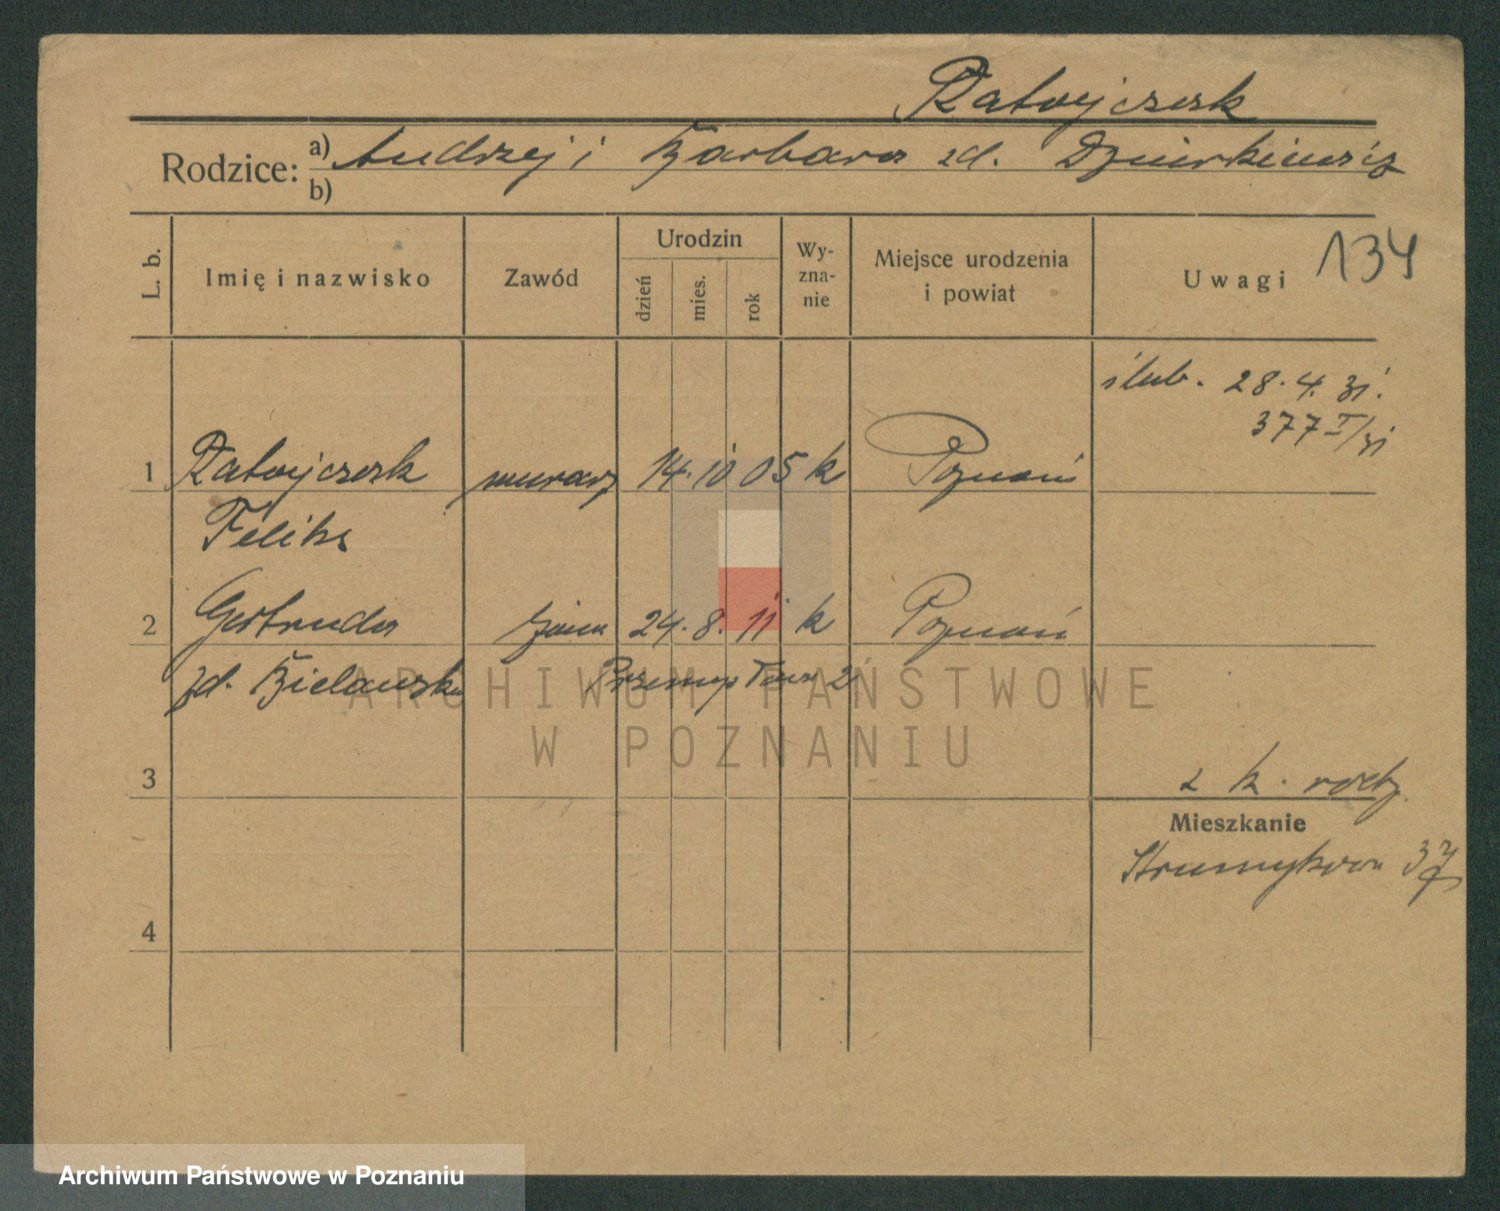 Ratajczak
Rodzice: a) Andrzej i Barbara zd.
b)
L. b.
Imię i nazwisko
Zawód
Urodzin
dzień
mies.
rok
Wy-
zna-
nie
Miejsce urodzenia
i powiat
Uwagi
134
ślub. 28.4.31.
377 I/31
1 Ratajczak murarz 14. 10 05 k Poznań
Feliks
2 Gertruda żona 24. 8. 11 k Poznań
zd. Bielawska
ARCHIWUM PAŃSTWOWE
W POZNANIU
3
2 k.
Mieszkanie
Strumykowa 37
4
Archiwum Państwowe w Poznaniu